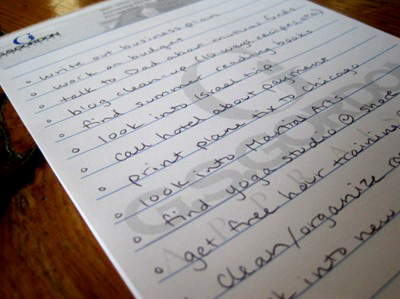 GSGORDON
• write out business plan
• work on budget
• talk to Dad about mutual funds
• blog clean-up
• find summer reading books
• look into Israel trip
• call hotel about payment
• print plane tix to Chicago
• look into Martial Arts
• find yoga studio
• get free hour training
clean/organize
into new